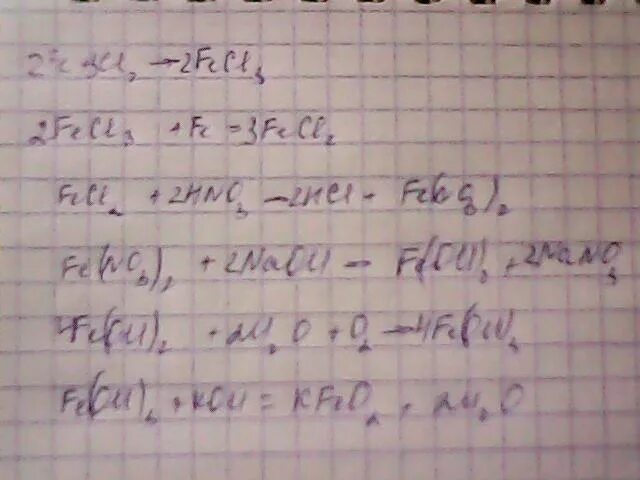 2Fe 3Cl₂ → 2FeCl₃
2FeCl₃ + Fe = 3FeCl₂
FeCl₂ + 2HNO₃ — 2HCl + Fe(NO₃)₂
Fe(NO₃)₂ + 2NaOH — Fe(OH)₂ + 2NaNO₃
4Fe(OH)₂ + 2H₂O + O₂ → 4Fe(OH)₃
Fe(OH)₃ + KOH = KFeO₂ + 2H₂O